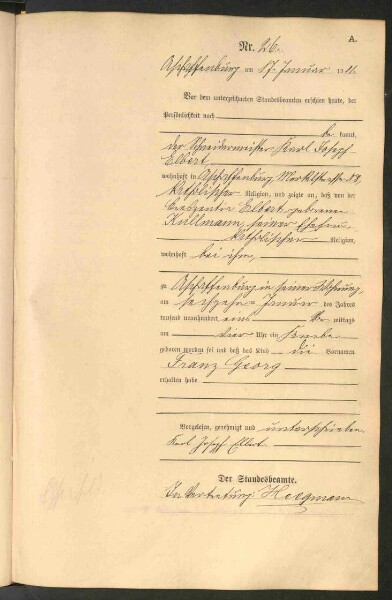 A.
Nr. 26.
Aschaffenburg am 17. Januar 19
Vor dem unterzeichneten Standesbeamten erschien heute, der
Persönlichkeit nach
be kannt,
der Schneidermeister Karl Joseph
Elbert
wohnhaft in Aschaffenburg
katholischer Religion, und zeigte an, daß von der
Elbert, geborene
Kullmann, seiner Ehefrau
katholischer Religion,
wohnhaft bei ihm,
zu Aschaffenburg in seiner Wohnung,
am sechzehn Januar des Jahres
tausend neunhundert eins mittags
um vier Uhr ein Knabe
geboren worden sei und daß das Kind die Vornamen
Franz Georg
erhalten habe
Vorgelesen, genehmigt und unterschrieben
Karl Joseph Elbert
Der Standesbeamte.
In Vertretung